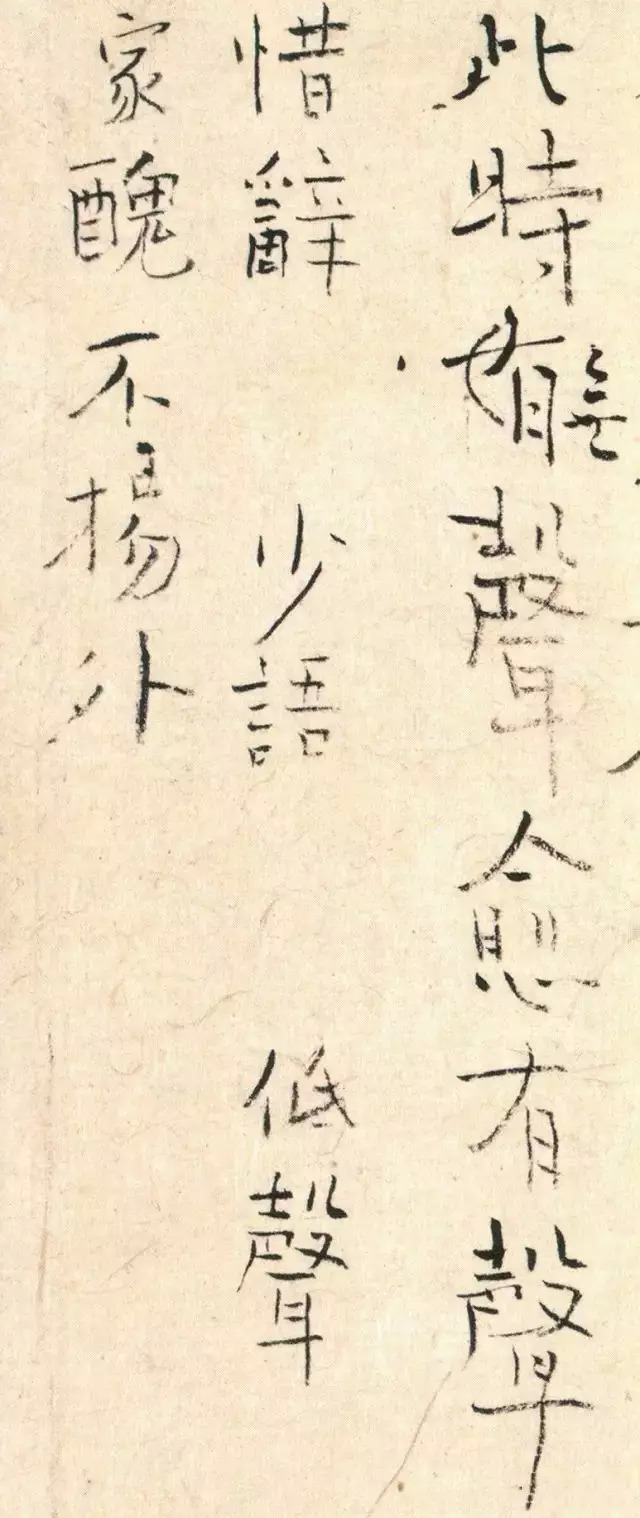 此時無聲愈有聲
惜辭 少語 低聲
家醜不揚外